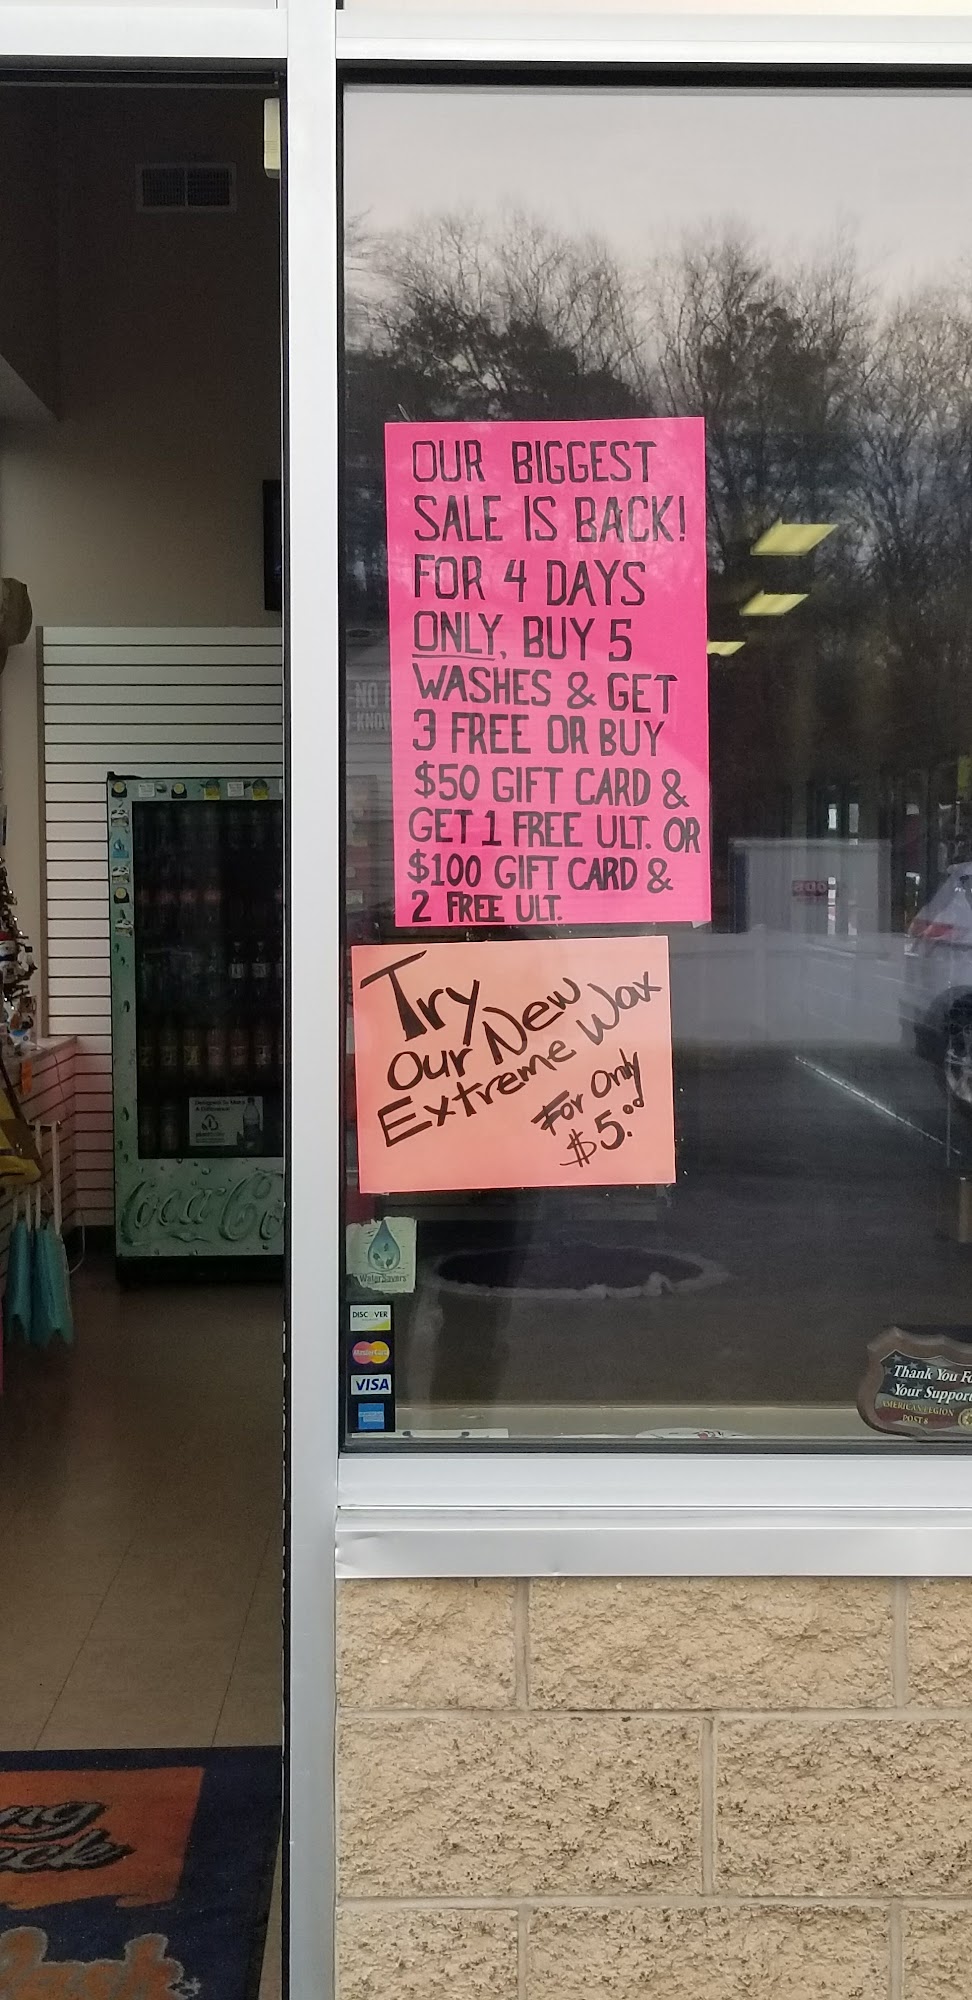 OUR BIGGEST
SALE IS BACK!
FOR 4 DAYS
ONLY, BUY 5
WASHES & GET
3 FREE OR BUY
$50 GIFT CARD &
GET 1 FREE ULT. OR
$100 GIFT CARD &
2 FREE ULT.
Try
Our New
Extreme Wax
For Only
$5.00
WaterSavers
DISCOVER
MasterCard
VISA
Thank You Fo
Your Support
AMERICAN LEGION
POST 6
NO
KNOW
Designed To Make
A Difference
Coca Co